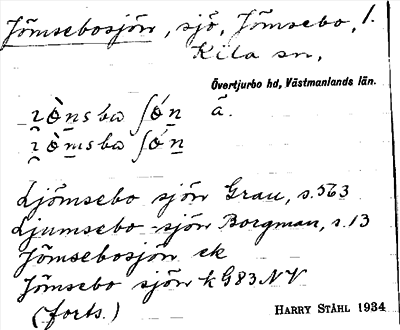 Jömsebosjön, sjö, Jömsebo, 1.
Kila sn,
Övertjurbo hd, Västmanlands län.
ɪ̯ö̀n̲sbω ʃǿn̲ å.
ɪ̯ö̀m̲sbω ʃǿn̲
Ljömsebo sjön Grau, s.563
Ljumsebo-sjön Borgman, s.13
Jömsebosjön ek
Jömsebo sjön k G83 NV
(forts.)
HARRY STÅHL 1934